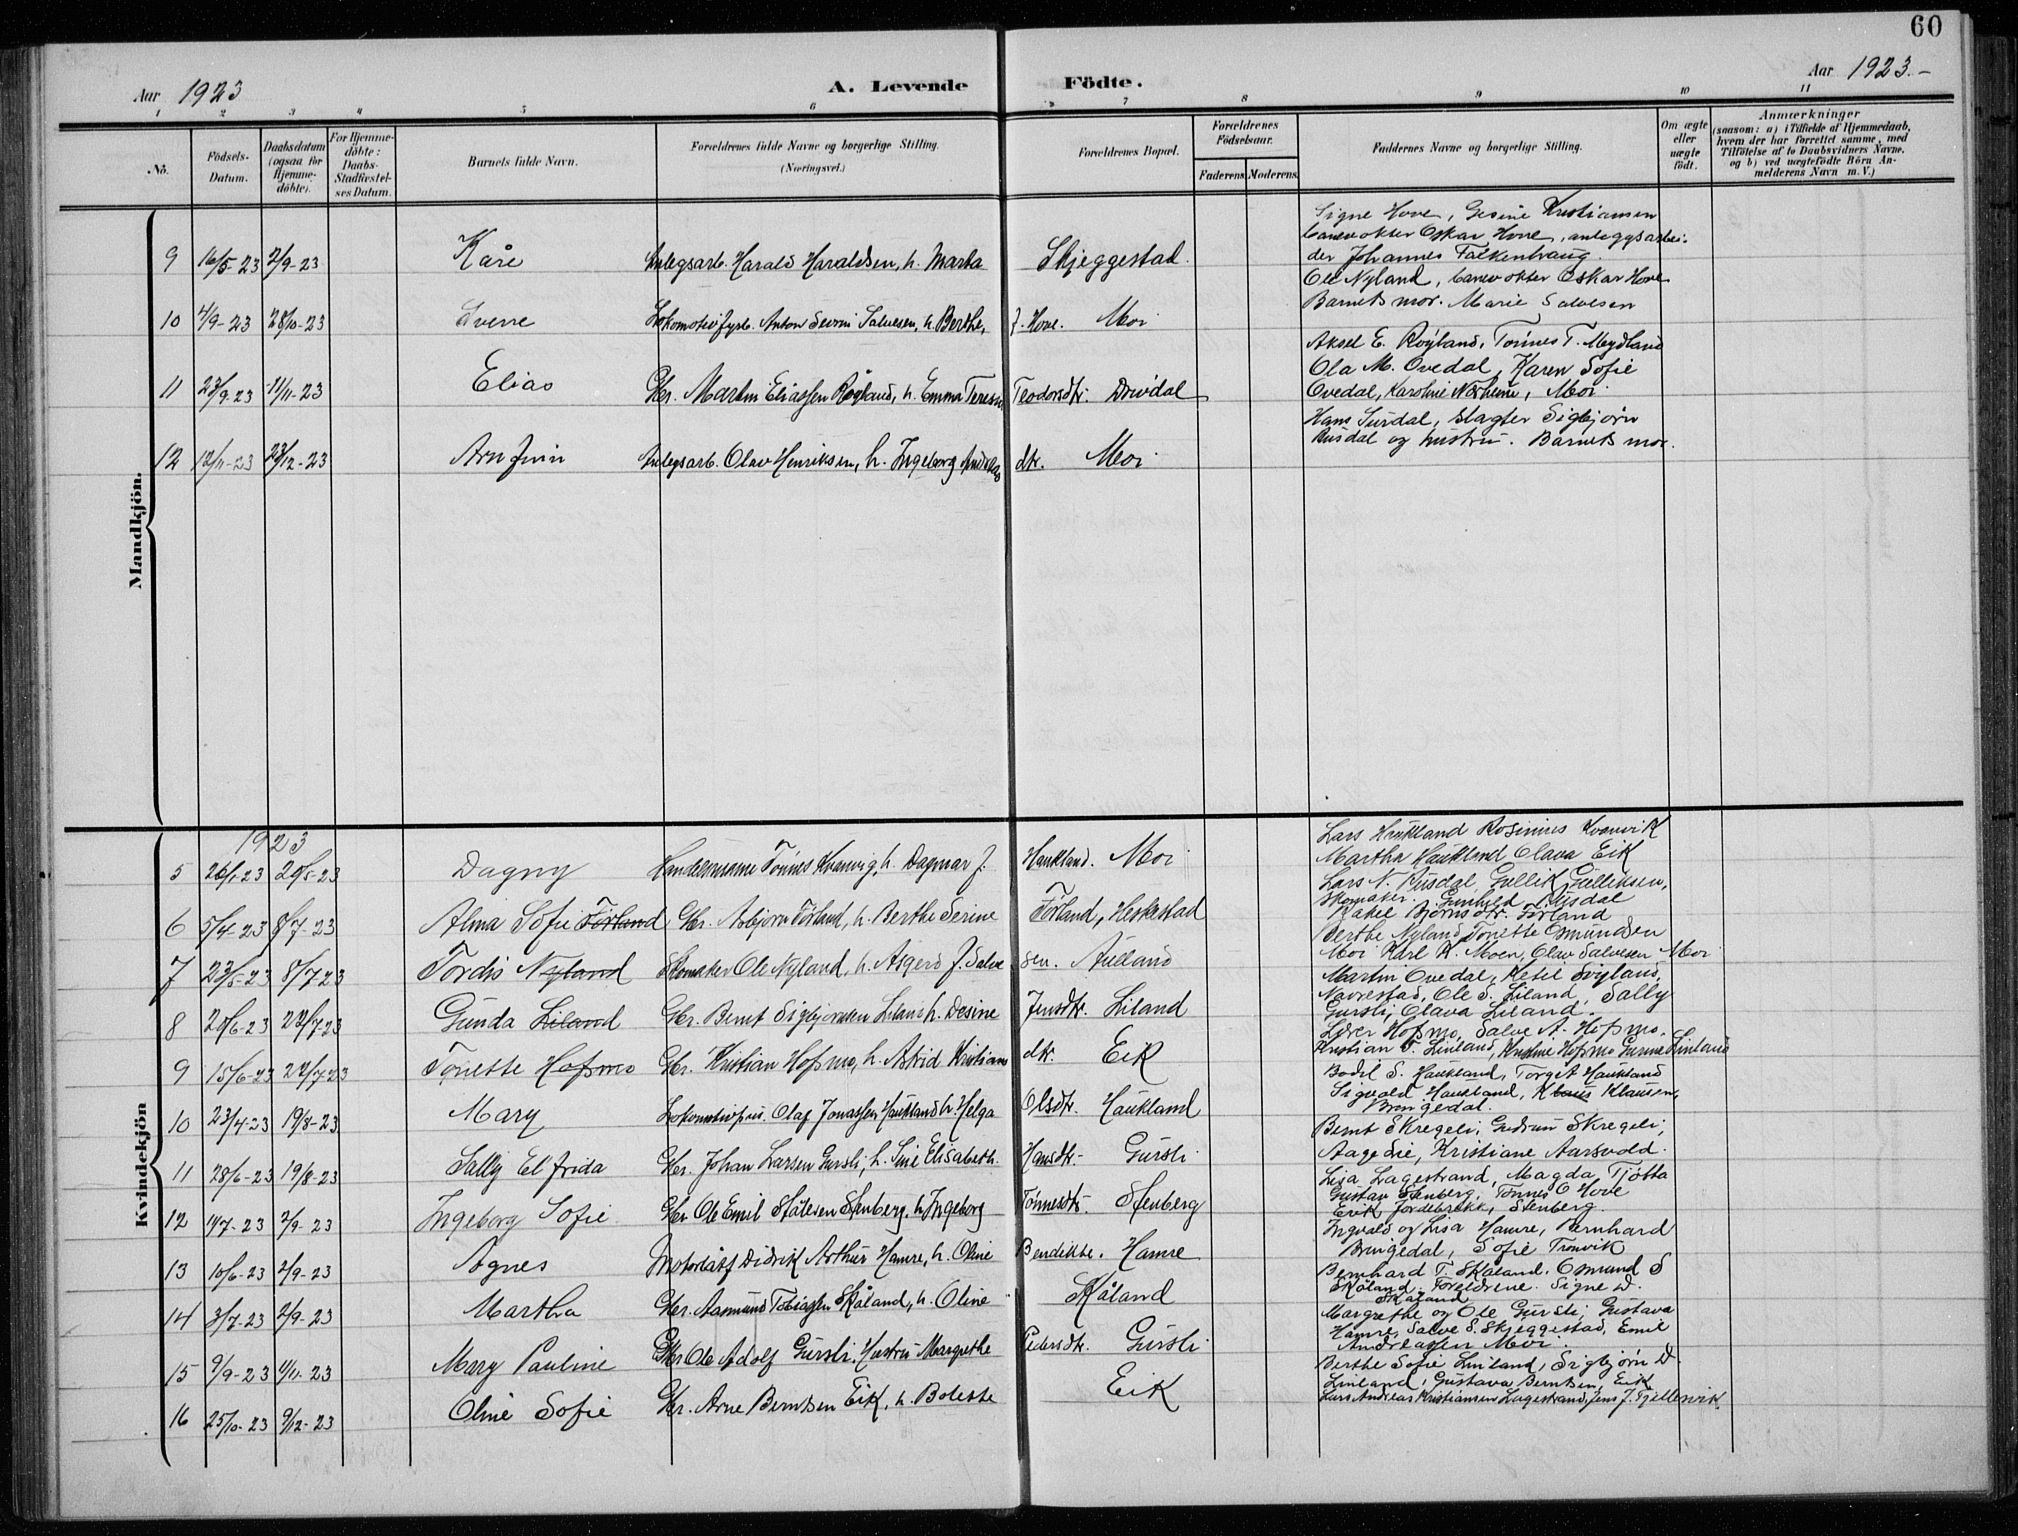 60
Aar 1923
A. Levende Födte.
Aar 1923.-
1 2 3 4 5 6 7 8 9 10 11
No.
Födsels-Datum.
Daabsdatum (ogsaa for Hjemme-döbte).
For Hjemme-döbte: Daabs-Stadfæstel-ses Datum.
Barnets fulde Navn.
Forældrenes fulde Navne og borgerlige Stilling.
(Næringsvei.)
Forældrenes Bopæl.
Forældrenes Födselsaar.
Faderens. Moderens.
Faddernes Navne og borgerlige Stilling.
Om ægte eller uægte födt.
Anmærkninger
(saasom: a) i Tilfælde af Hjemmedaab,
hvem der har forrettet samme, med
Tilföielse af to Daabsvidners Navne.
og b) ved uægtefödte Börn An-
melderens Navn m. V.)
Mandkjön.
Signe Hove, Gesine Kristiansen
banevokter Oskar Hove, anleggsarbei-
9 16/5-23 2/9-23 Kåre Anlegsarb. Harald Haraldsen, h. Marta Skjeggestad. der Johannes Falkenhaug.
Ole Nyland, banevokter Oskar Hove
Barnets mor. Marie Salvesen
10 4/9-23 28/10-23 Sverre Lokomotivfyrb. Anton Severin Salvesen, h. Berthe, J. Hove. Moi
Aksel E. Röyland, Tönnes T. Mydland
Ola M. Ovedal, Karen Sofie
11 23/9-23 11/11-23 Elias Gbr. Martin Eliassen Röyland, h. Emma Teresie Teodorsdtr. Drivdal Ovedal, Karoline Norheim, Moi
Hans Surdal, slagter Sigbjørn
Rusdal og hustru. Barnets mor.
12 12/11-23 23/12-23 Arnfinn Anlegsarb. Olav Henriksen, h. Ingeborg Andreas dtr. Moi
Kvindekjön
1923
Lars Haukland Rosinius Kvanvik
Martha Haukland Olava Eik
5 26/1-23 20/5-23 Dagny Handelsmann Tönnes Kvanvig, h. Dagmar J. Haukland. Moi
Lars N. Rusdal, Gullik Gulliksen,
Skomaker. Gunhild Rusdal
6 5/4-23 8/7-23 Alma Sofie Förland Gbr. Asbjørn Förland, h. Berthe Serine Förland, Heskestad Rakel Bjørnsdtr. Förland
Berthe Nyland Tonette Osmundsen
7 23/5-23 8/7-23 Tordis Nyland Skomaker Ole Nyland, h. Asgerd J. Salve sen. Aulland Moi Karl K. Moen, Olav Salvesen Moi
Martin Ovedal, Ketil Svyland,
Navrestad, Ole S. Liland, Sally
8 20/6-23 22/7-23 Gunda Liland Gbr. Bernt Sigbjørnsen Liland h. Desine Jensdtr. Liland Gursli, Olava Liland.
Lærer Hofsmo, Salve A. Hofsmo.
9 15/6-23 22/7-23 Tonette Hofsmo Gbr. Kristian Hofsmo, h. Astrid Kristians dtr. Eik Kristian T. Linland, Kristine Hofsmo Gurine Linland
Bodil S. Haukland, Torget Haukland
10 23/4-23 19/8-23 Mary Lokomotivpus. Olaf Jonassen Haukland h. Helga Olsdtr. Haukland Sigvald Haukland, Klaus Klausen,
Bringedal.
Bernt Skregeli, Gudrun Skregeli,
11 28/6-23 19/8-23 Sally Elfrida Gbr. Johan Larsen Gursli, h. Sine Elisabeth Hansdtr. Gursli Aagedie, Kristiane Aarsvold.
Lisa Lagestrand, Magda Tjötta
12 11/7-23 2/9-23 Ingeborg Sofie Gbr Ole Emil Ståtesen Stenberg, h. Ingeborg Tönnesdtr. Stenberg Gustav Stenberg, Tönnes O Hove
Erik Jordebrekk, Stenberg.
Ingvald og Lisa Hamre, Bernhard
13 10/6-23 2/9-23 Agnes Didrik Arthur Hamre, h. Oline Bendikte. Hamre Bringedal, Sofie Tronvik
Bernhard T. Skåland. Osmund S
14 3/7-23 2/9-23 Martha Gbr. Aasmund Tobiassen Skåland, h. Oline Skåland Skåland, Foreldrene. Signe D.
Skåland
Margrethe og Ole Gursli, Gustava
15 9/9-23 4/11-23 Mary Pauline Gbr Ole Adolf Gursli, Hustru Margrethe Pedersdtr. Gursli Hamre, Salve S. Skjeggestad, Emil
Andreassen Moi.
Berthe Sofie Linland, Sigbjørn D.
16 25/10-23 9/12-23 Oline Sofie Gbr. Arne Berntsen Eik, h. Bolette Eik Linland, Gustava Berntsen, Eik
Lars Andreas Kristiansen Lagestrand, Jens J. Fjellesvik.